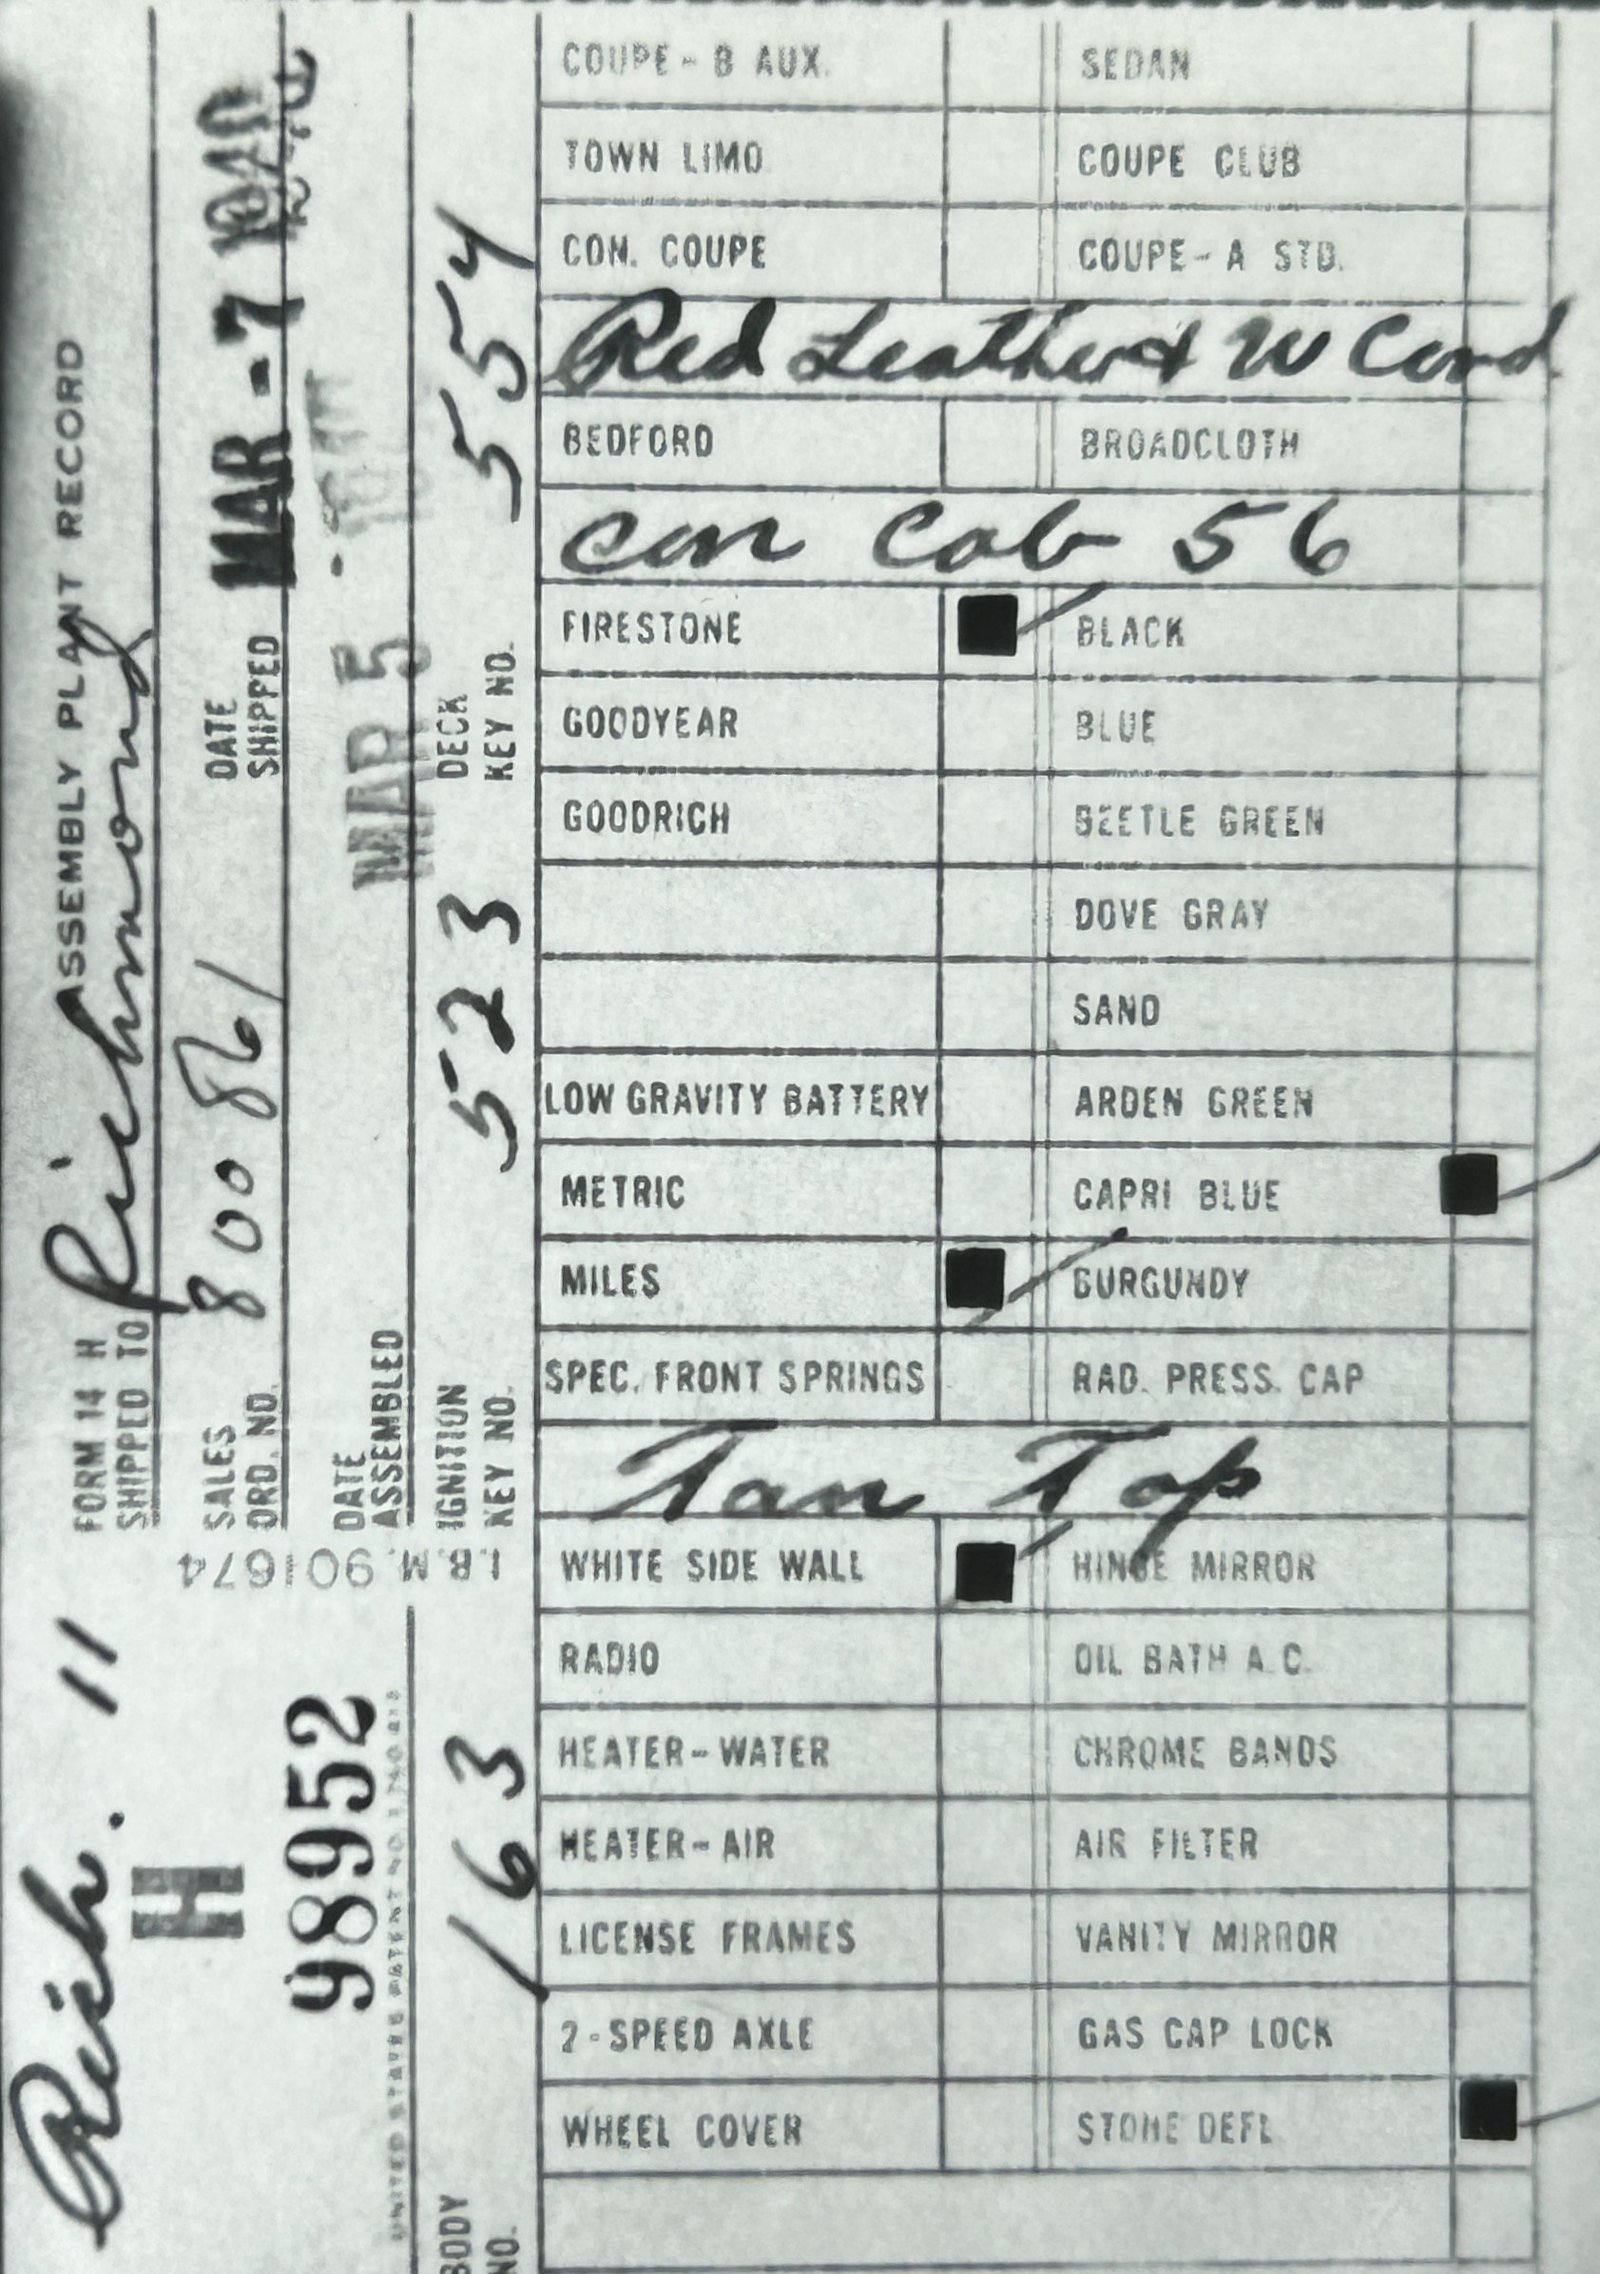 ASSEMBLY PLANT RECORD
FORM 14 H
SHIPPED TO Richmond
SALES ORD. NO. 800 861
DATE SHIPPED MAR - 7 1940
DATE ASSEMBLED MAR 5
IGNITION KEY NO. 523
DECK KEY NO. 554
I.B.M. 901674
Rich. 11
H
98952
UNITED STATES PATENT NO.
BODY NO. 163
COUPE - B AUX. SEDAN
TOWN LIMO COUPE CLUB
CON. COUPE COUPE - A STD.
Red Leather & W Cord
BEDFORD BROADCLOTH
Con Cab 56
FIRESTONE BLACK
GOODYEAR BLUE
GOODRICH BEETLE GREEN
DOVE GRAY
SAND
LOW GRAVITY BATTERY ARDEN GREEN
METRIC CAPRI BLUE
MILES BURGUNDY
SPEC. FRONT SPRINGS RAD. PRESS. CAP
Tan Top
WHITE SIDE WALL HINGE MIRROR
RADIO OIL BATH A.C.
HEATER - WATER CHROME BANDS
HEATER - AIR AIR FILTER
LICENSE FRAMES VANITY MIRROR
2 - SPEED AXLE GAS CAP LOCK
WHEEL COVER STONE DEFL